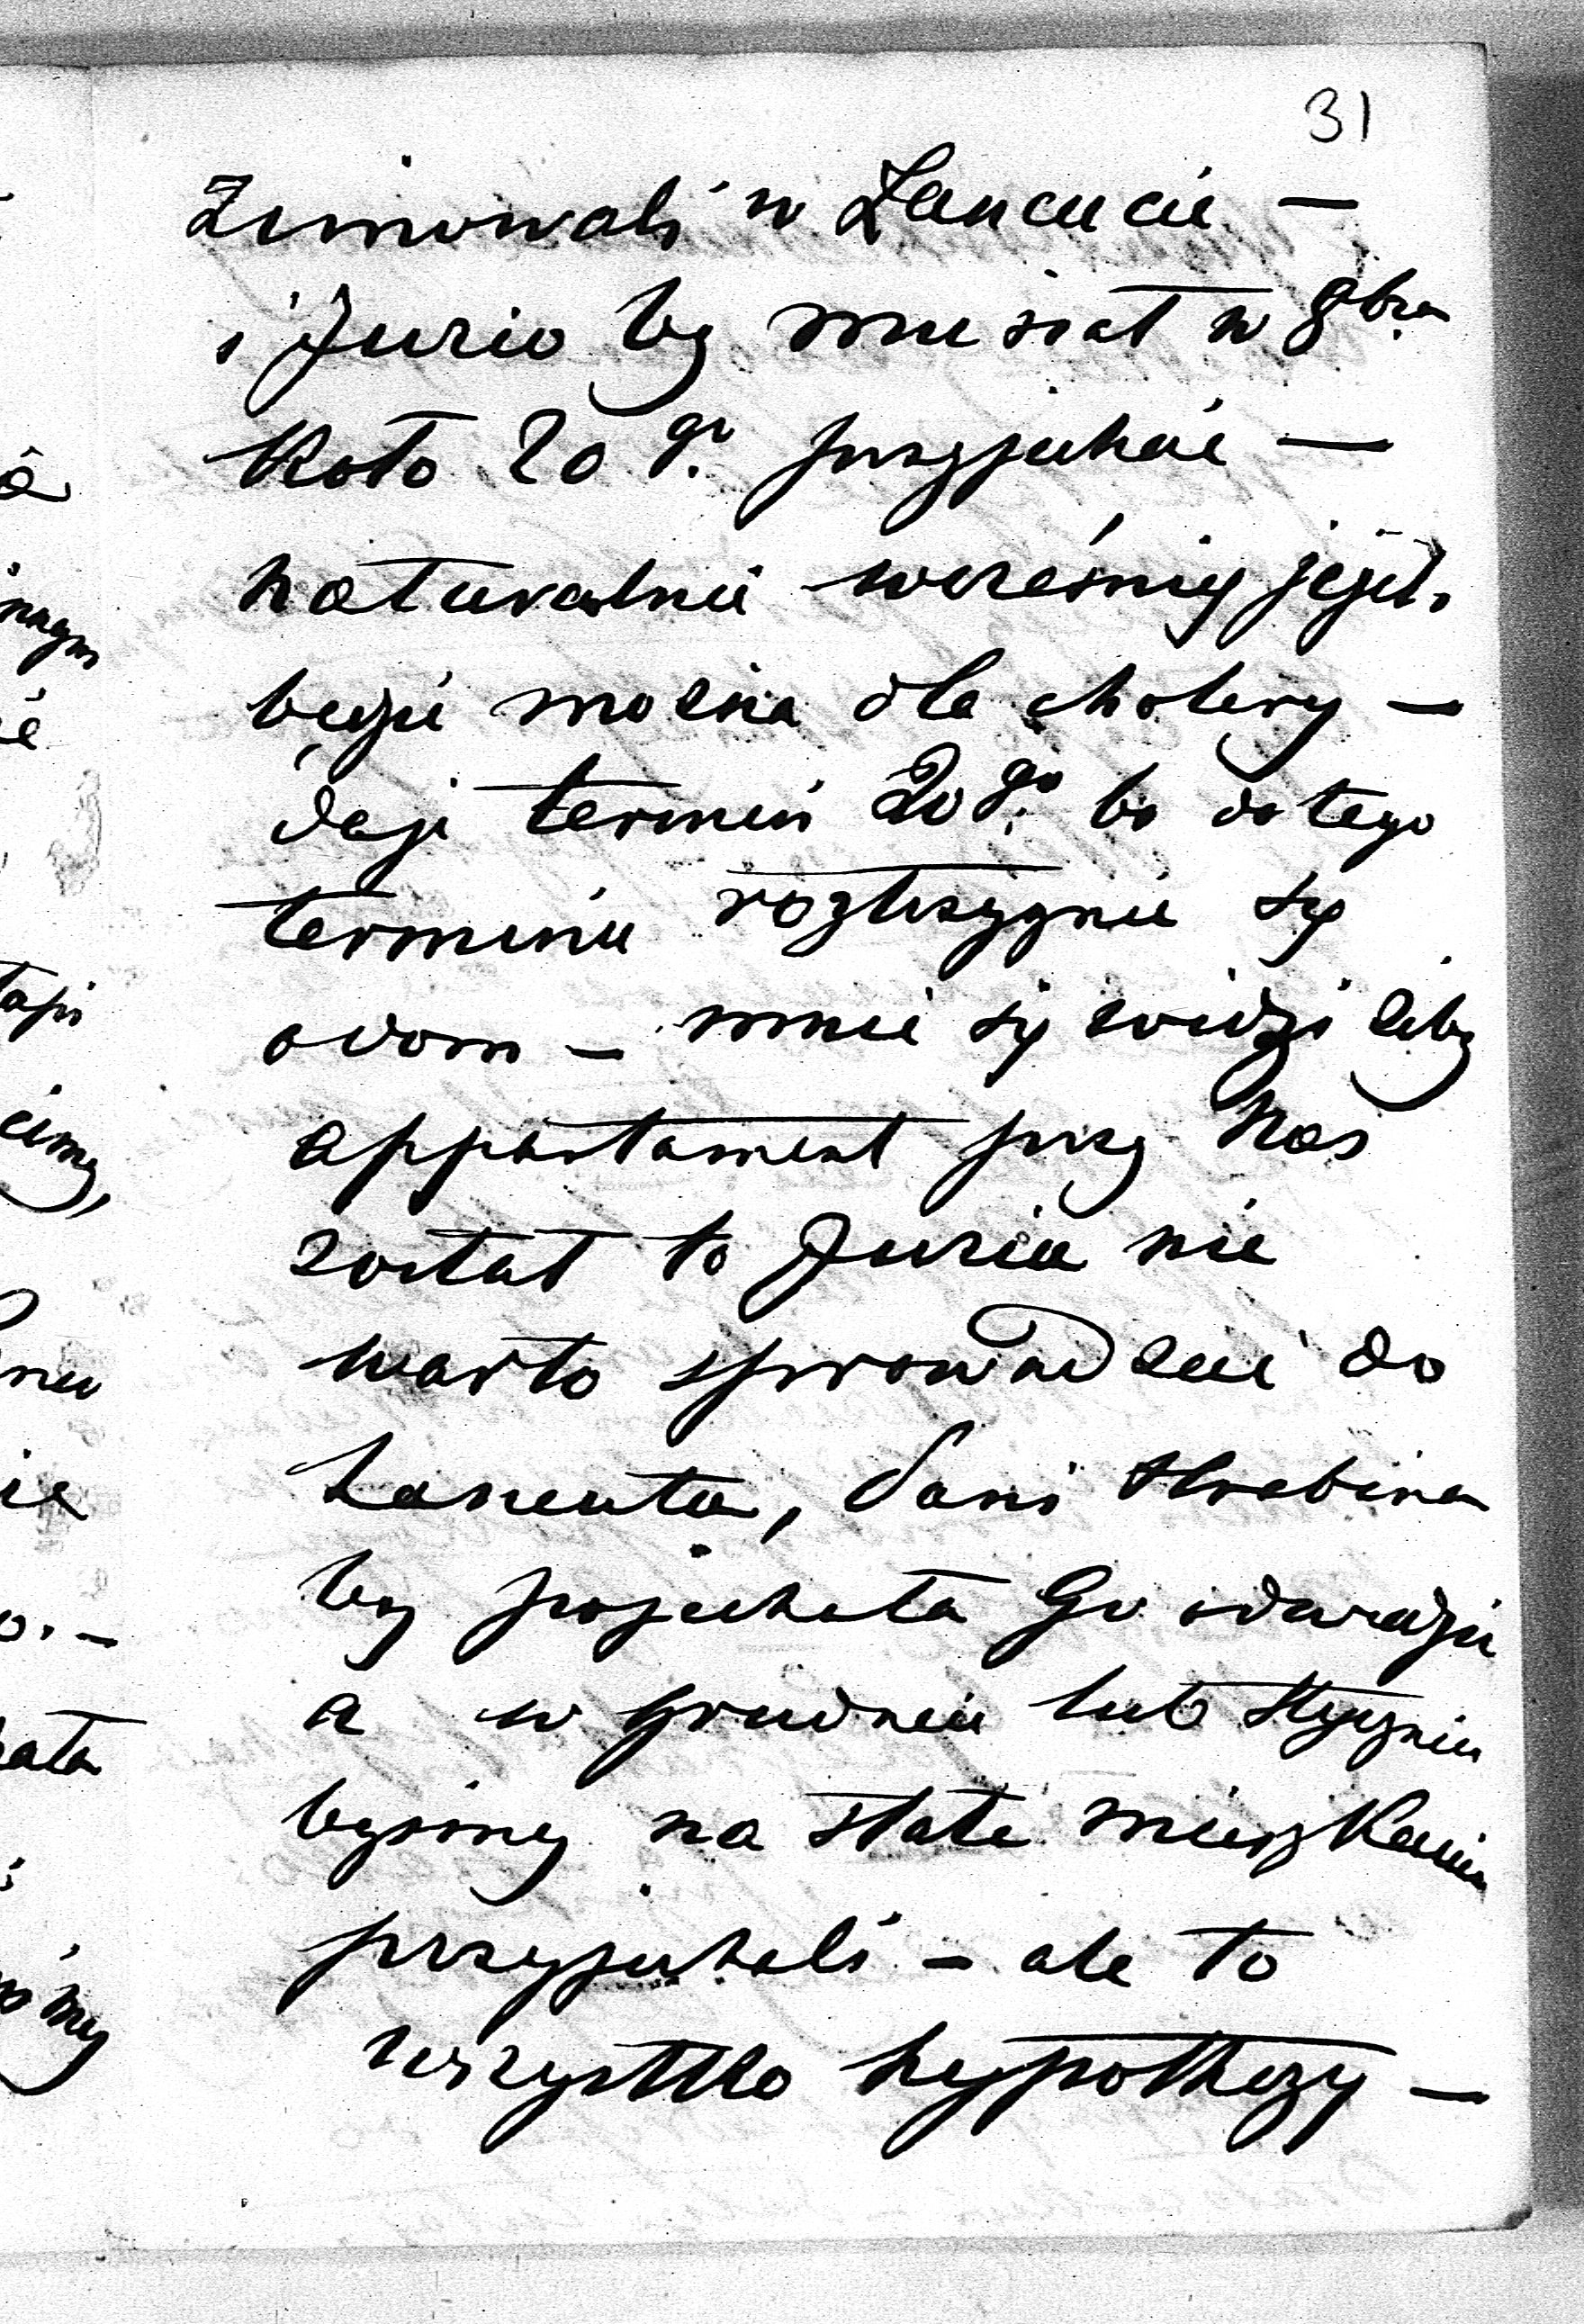 31
zimowali w Łancucie —
i Jurio by musiał w 8bra
koło 20 go przyjechać —
naturalnie wcześniej jeżeli
będzie można dla cholery —
daję termin 20 go bo do tego
terminu roztrzygnie się
o dom — mnie się widzi żeby
appartament przy nas
został to Juria nie
warto sprowadzać do
Łancuta, Pani Hrabina
by pojechała Go odwiedzić
a w Grudniu lub Styczniu
byśmy na stałe mieszkanie
przyjechali — ale to
wszystko hypothezy —